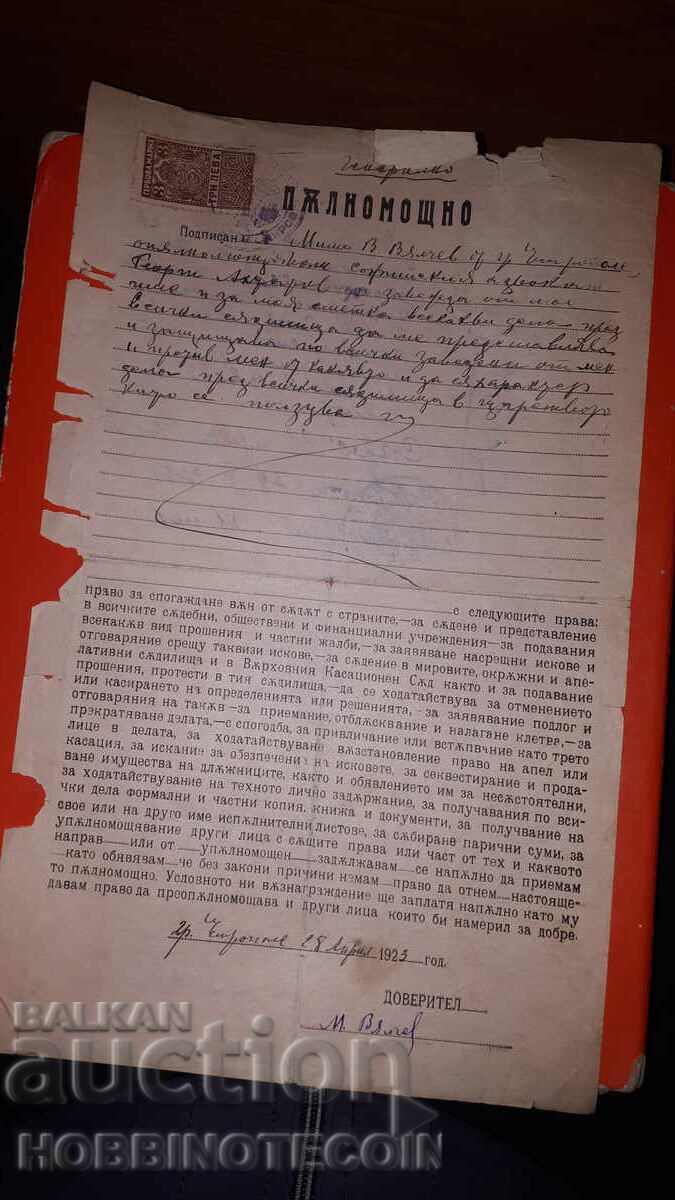 ГЕРБОВА МАРКА
3 3
ТРИ ЛЕВА
Генерално
ПѪЛНОМОЩНО
Подписан М. В. Вѫлчев от гр.
софийския адвокат
Георги да завежда от мое
име и за моя сметка всекакви дела пред
всички сѫдилища да ме представлява
и защищава по всички заведени от мен
и против мен от какъвто и да е характер
дела пред всички сѫдилища в
се ползува
право за спогаждане вѫн от сѫдът с страните,—за сѫдене и представление с следующите права:
в всичките сѫдебни, обществени и финанциални учреждения—за подавания
всекакѫв вид прошения и частни жалби,—за заявяване насрещни искове и
отговаряние срещу таквизи искове,—за сѫдение в мировите, окрѫжни и апе-
лативни сѫдилища и в Вѫрховния Касационен Сѫд както и за подавание
прошения, протести в тия сѫдилища,—да се ходатайствува за отменението
или касирането на определенията или решенията,—за заявявание подлог и
отговаряния на такѫв—за приемание, отблѫскванние и налагане клетва,—за
прекратяване делата,—с спогодба, за привличание или встѫпвание като трето
лице в делата, за ходатайствувание вѫзстановление право на апел или
касация, за искание за обезпечение на исковете, за секвестирание и прода-
ване имущества на длѫжниците, както и обявлението им за несѫстоятелни,
за ходатайствувание на техното лично задѫржание, за получавания по вси-
чки дела формални и частни копия, книжа и документи, за получвание на
свое или на друго име испѫлнителни листове, за сѫбиране парични суми, за
упѫлномощявание други лица с сѫщите права или част от тех и каквото
направ или от упѫлномощен задѫлжавам се напѫлно да приемам
като обявявам че без закони причини немам право да отнем настояще-
то пѫлномощно. Условното ни вѫзнаграждение ще заплатя напѫлно като му
давам право да преопѫлномощава и други лица които би намерил за добре.
гр. 28 Април 1923 год.
ДОВЕРИТЕЛ
М. Вѫлчев
BALKAN
auction
HOBBINOTE.COIN